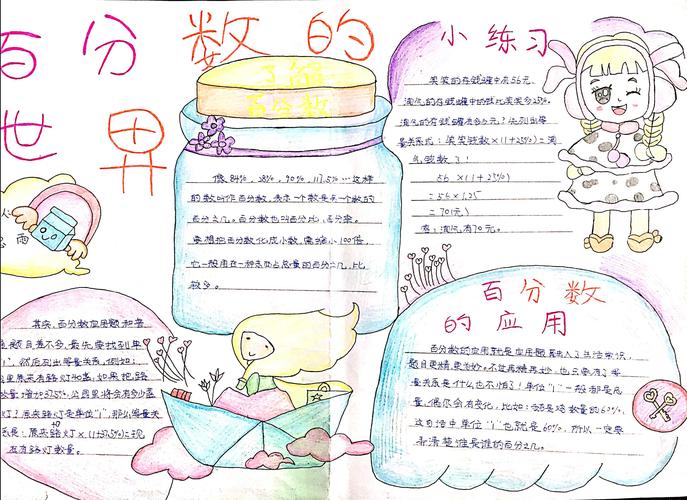 百分数的
世界
了解
百分数
像84%，28%，90%，117.5%…这样
的数叫作百分数，表示一个数是另一个数的
百分之几。百分数也叫百分比，百分率。
要想把百分数化成小数，需缩小100倍，
它一般用在一种东西占总量的百分之几，比
较多。
小练习
笑笑的存钱罐中有56元，
淘气的存钱罐中的钱比笑笑多25%。
淘气的存钱罐有多少元？先列出等
量关系式：笑笑钱数×(1+25%)=淘
气钱数，
56×(1+25%)
=56×1.25
=70(元)
答：淘气有70元。
其实，百分数应用题和普
题目差不多，最先要找到单
"1"，然后列出等量关系，例如：
里原来有路灯40盏，如果把路
数量增加37.5%，公园里将会有多少盏
灯？原来路灯是单位"1"，那么等量关
式是：原来路灯×(1+37.5%)=现
在有路灯数量。
百分数
的应用
百分数的应用就是应用题融入了生活常识，
题目更精，更奇妙。不过再精再妙，也只要有了等
量关系是什么也不怕了！单位"1"一般都是总
量，偶尔会有变化，比如：
这句话中单位"1"也就是60%，所以一定要
弄清楚谁是谁的百分之几。